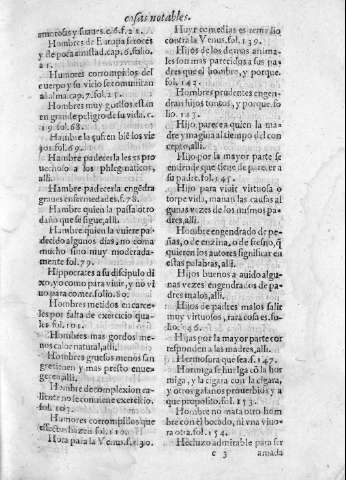 cosas notables.
amorosas y suaues.c.6.f.21.
Hombres de Europa feroces
y de poca amistad.cap.6.folio
21.
Humores corrompidos del
cuerpo y su vicio se comunican
al alma.cap.7.fol.25.
Hombres muy gordos estan
en grande peligro de su vida.c.
19.fol.68.
Hambre la suffren biē los vie
jos.fol.69.
Hambre padecerla les es pro
uechoso a los phlegmaticos,
alli.
Hambre padecerla engēdra
graues enfermedades.f.78.
Hambre quien la passa otro
daño que se sigue, alli.
Hambre quien la vuiere pa-
decido algunos dias, no coma
mucho sino muy moderada-
mente fol.79.
Hippocrates a su discipulo di
xo, yo como para viuir, y no vi
uo para comer.folio.80.
Hombres metidos en carce-
les por falta de exercicio
fol.101.
Hombres mas gordos me-
nos calor natural, alli.
Hombres gruessos menos san
gre tienen y mas presto enue-
gecen, alli.
Hombre de complexion ca-
liente no le conuiene exercicio.
fol.107.
Humores corrompidos que
fol.110.
Hora para la Venus.f.130.
Huyr comedias es remedio
contra la Venus.fol.139.
Hijos de los demas anima-
les son mas parecidos a sus pa
dres que el hombre, y porque.
fol.142.
Hombres prudentes engen-
dran hijos tontos, y porque.fo
lio.143.
Hijo parece a quien la ma-
dre ymagina al tiempo del con
cepto, alli.
Hijo por la mayor parte se
engendra de que tiene de parecer a
su padre.fol.145.
Hijo para viuir virtuosa o
torpe vida, manan las causas al
gunas vezes de los mismos pa-
dres, alli.
Hombre engendrado de pe-
ñas, o de enzina, o de fresno, q̃
quieren los autores significar en
estas palabras, alli.
Hijos buenos a auido algu-
nas vezes engendrados de pa-
dres malos, alli.
Hijos de padres malos salir
muy virtuosos, rara cosa es.fo-
lio.146.
Hijas por la mayor parte cor
responden a las madres, alli.
Hermosura que sea.f.147.
Hormiga se huelga cō la hor
miga, y la cigara con la cigara,
y otros galanos prouerbios y a
que proposito.fol.153.
Hombre no mata otro hom-
bre con el bocado, ni vna viuo-
ra otra.fol.154.
Hechizo admirable para ser
c 3 amada